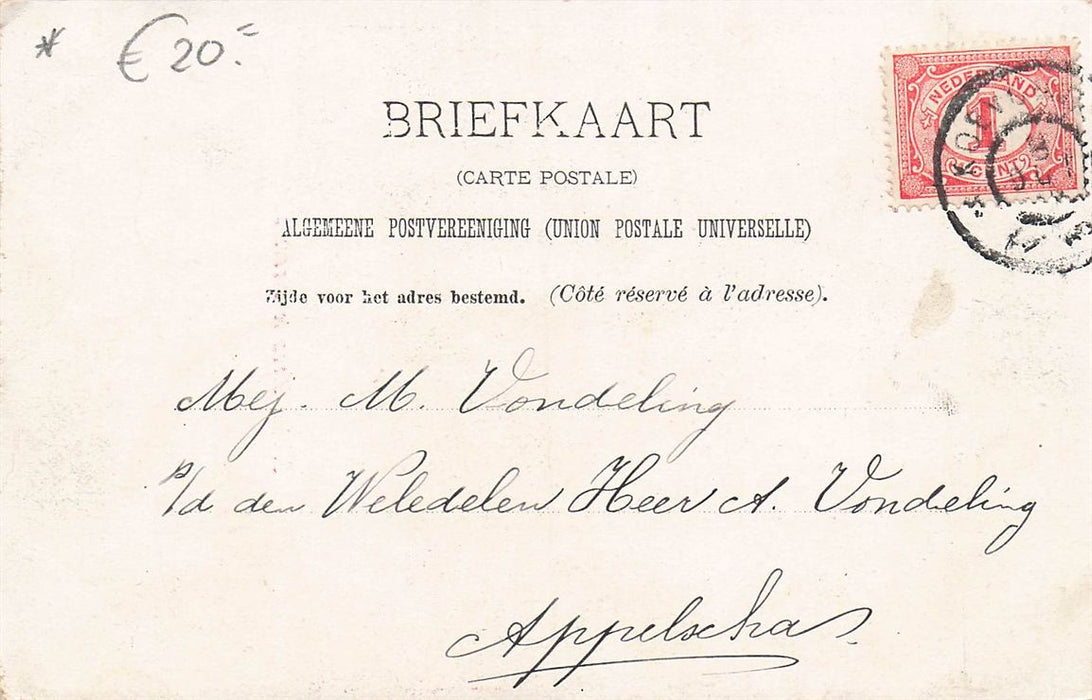 * € 20.=
NEDERLAND
1
CENT
BRIEFKAART
(CARTE POSTALE)
ALGEMEENE POSTVEREENIGING (UNION POSTALE UNIVERSELLE)
Zijde voor het adres bestemd. (Côté réservé à l'adresse).
Mej. M. Vondeling
p/d den Weledelen Heer A. Vondeling
Appelscha.